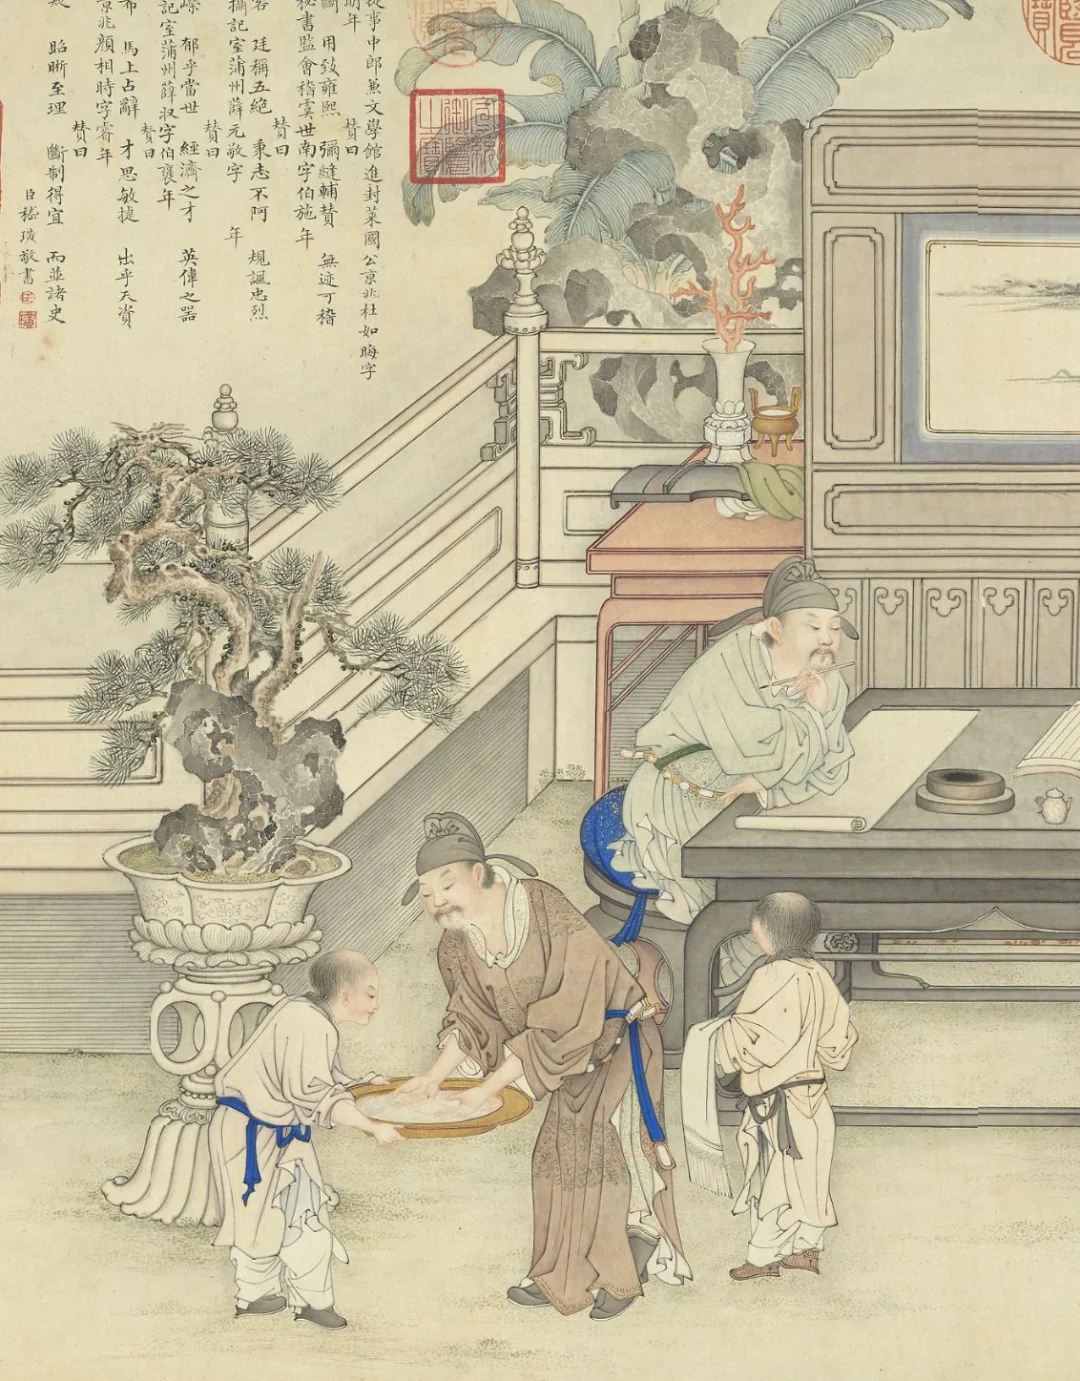 從事中郎兼文學館進封萊國公京兆杜如晦字
明年
贊曰
斷 用致雍熙 彌縫輔贊 無迹可稽
秘書監會稽虞世南字伯施年
贊曰
容 廷稱五絕 秉志不阿 規諷忠烈
攝記室蒲州薛元敬字 年
贊曰
嶸 郁乎當世 經濟之才 英偉之器
記室蒲州薛收字伯褒年
贊曰
布 馬上占辭 才思敏捷 出乎天資
京兆顏相時字睿年
贊曰
昭晰至理 斷制得宜 而並諸史
臣嵇璜敬書